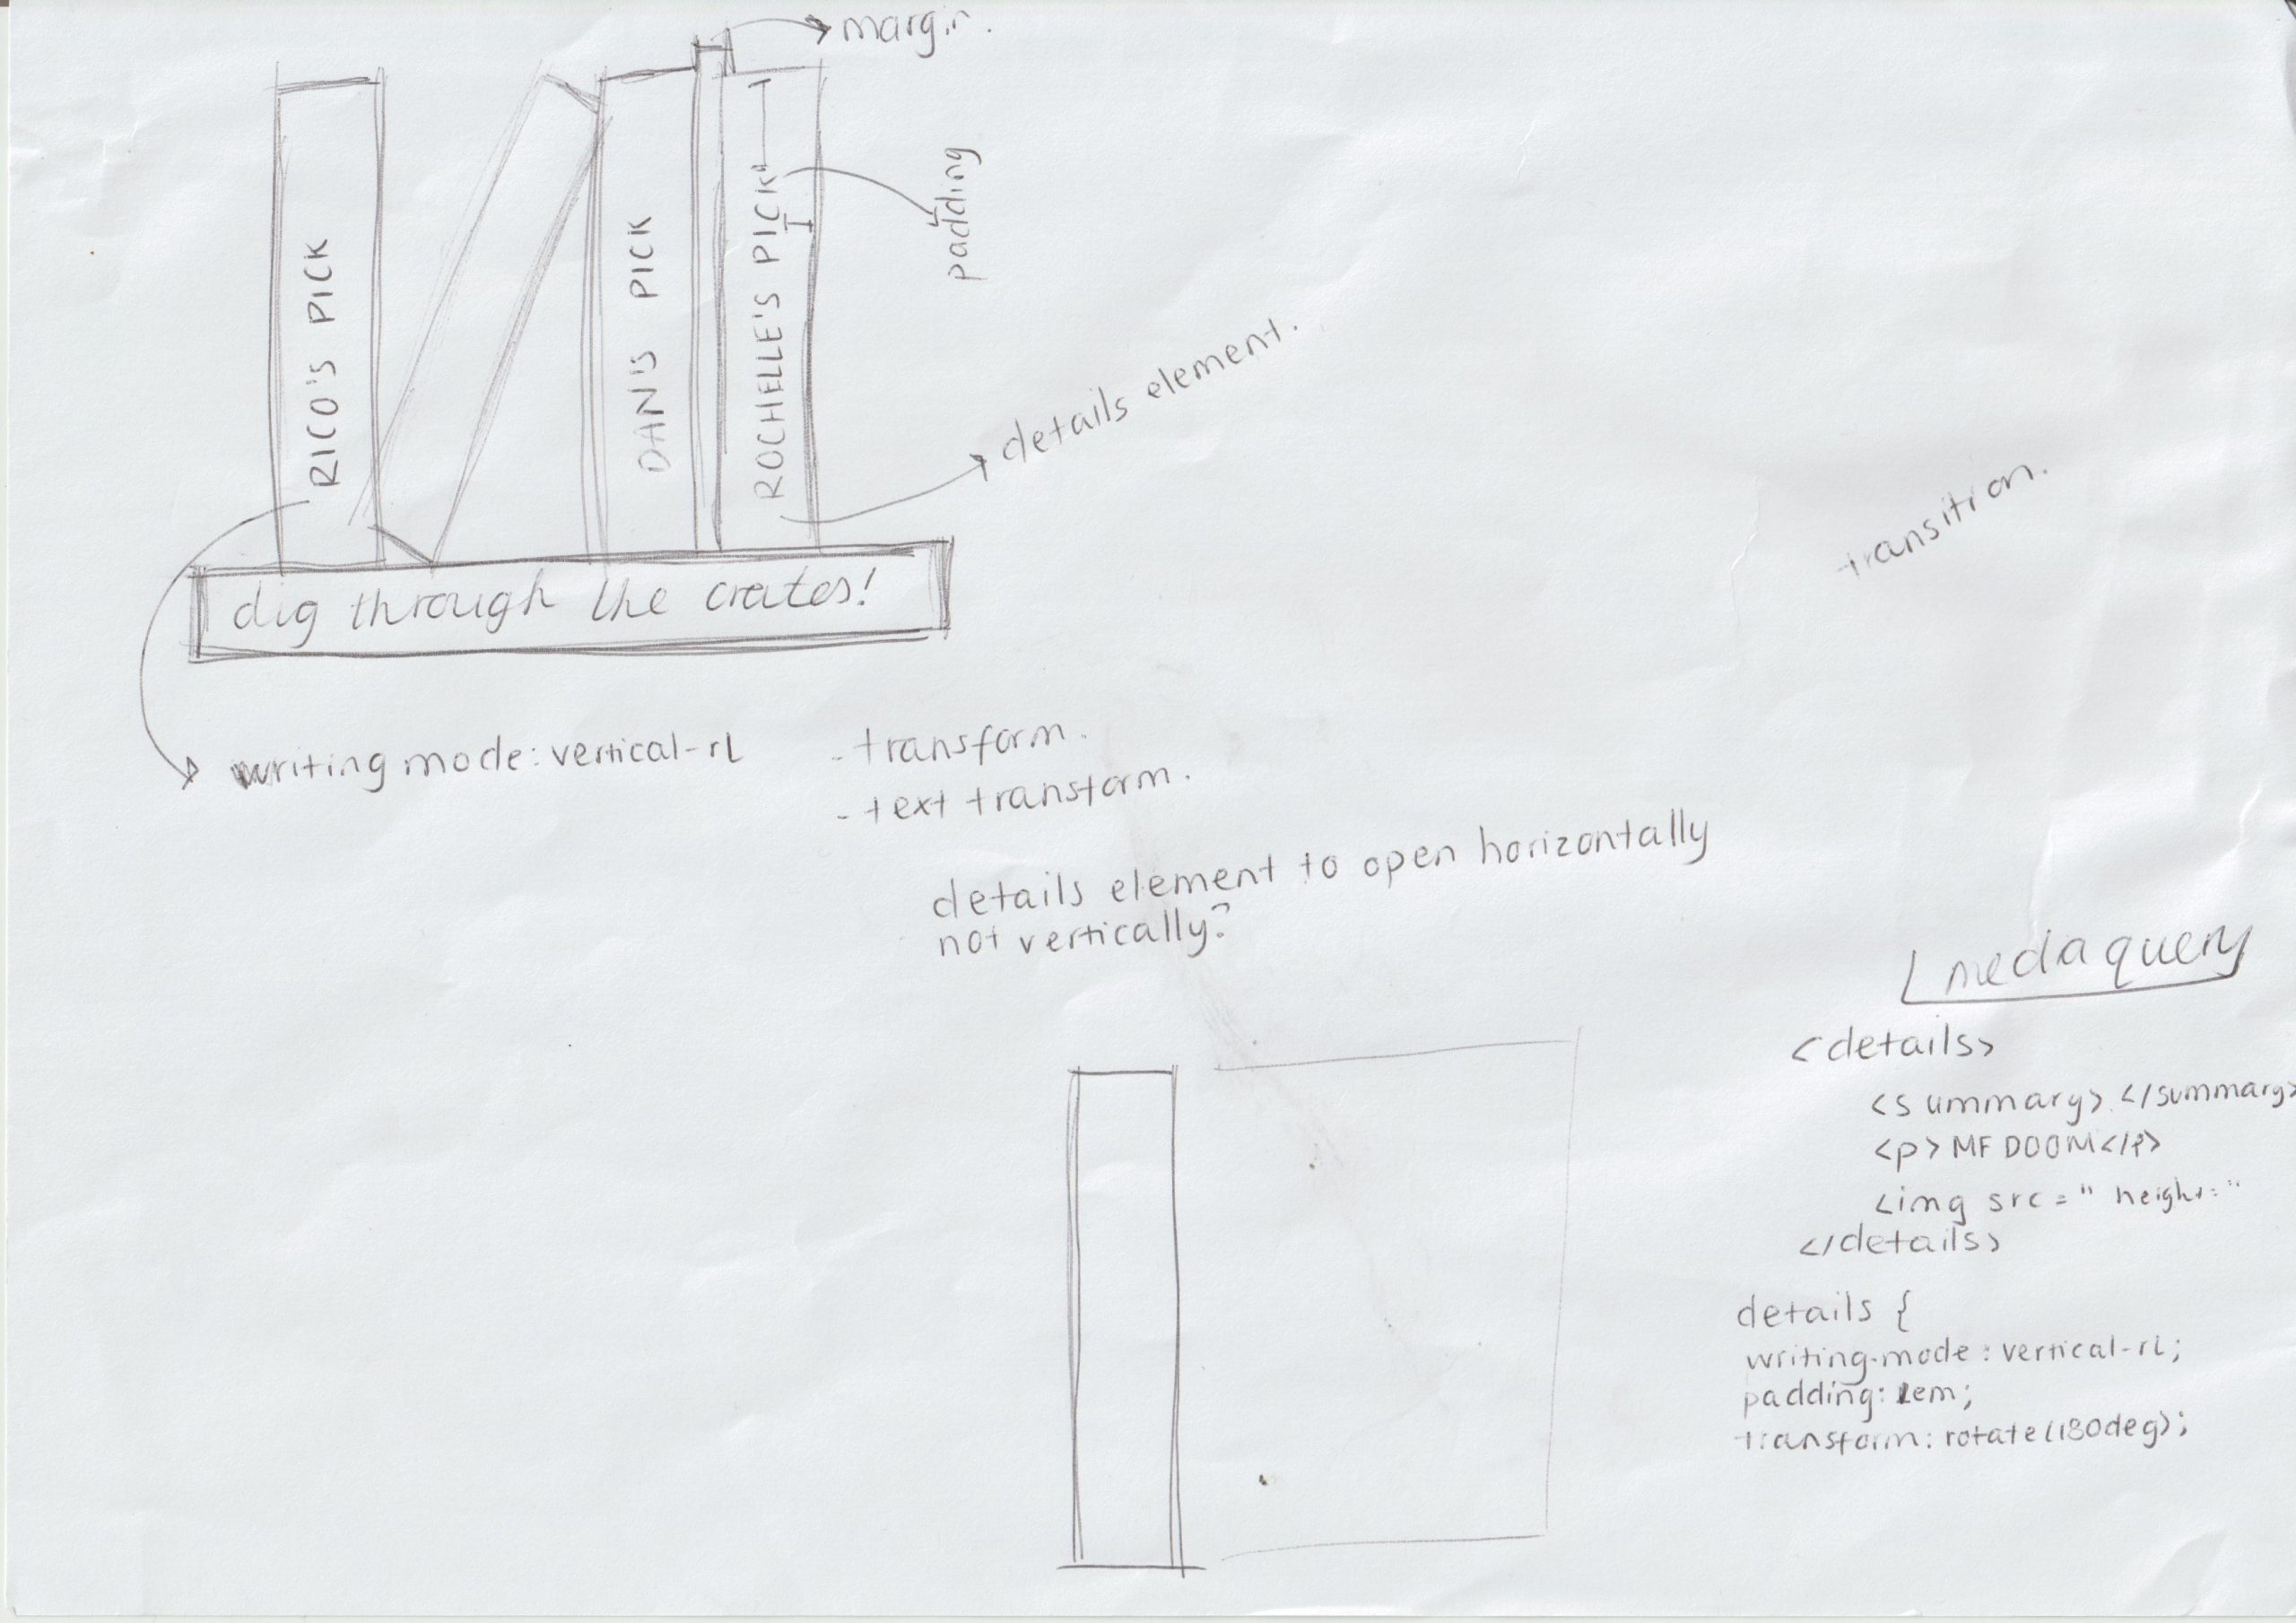 margin.
padding
RICO'S PICK
DAN'S PICK
ROCHELLE'S PICK
details element.
transition.
dig through the crates!
writing mode: vertical-rl
- transform.
- text transform.
details element to open horizontally
not vertically?
media query
<details>
<summary> </summary>
<p> MF DOOM </p>
<img src=" height="
</details>
details {
writing-mode: vertical-rl;
padding: 1em;
transform: rotate(180deg);